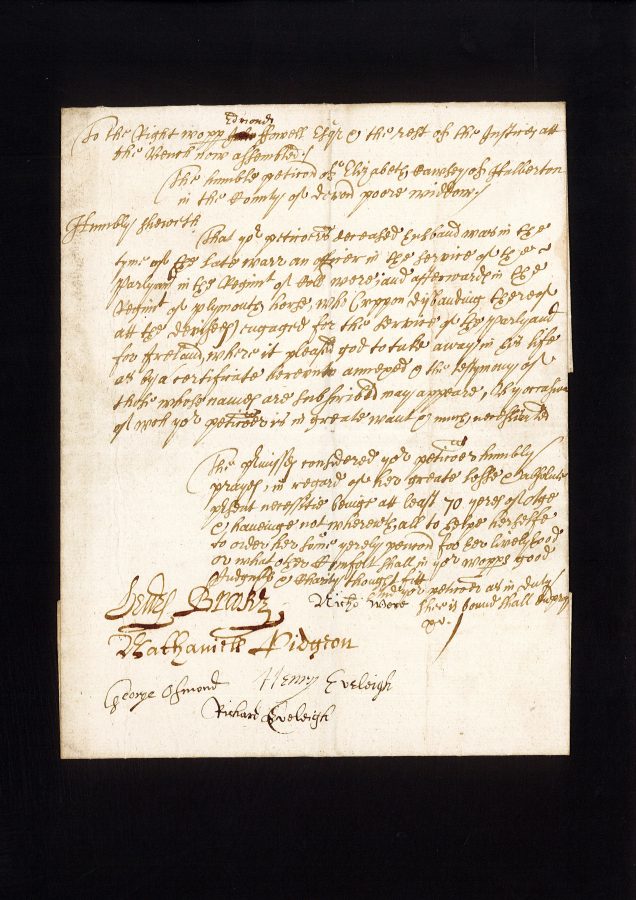 Edmond
To the Right wopp John ffowell Esqr & the rest of the Justices att
the Bench now assembled
The humble peticon of Elizabeth Cawsey of Halberton
in the County of devon poore widdow
Humbly sheweth
That yor peticoers deceased husband was in the
tyme of the late warr an officer in the service of the
Parlyamt in the Regimt of Coll were, and afterwards in the
Regimt of plymouth horse, who uppon disbanding thereof
att the devises, engaged for the service of the Parlyamt
for Ireland, where it pleased god to take away in his life
as by a certificate hereunto annexed & the testimony of
those whose names are subscribed may appeare, By occasion
of wch yor peticoer is in greate want & much necessitated
The pmisses considered yor peticoer humbly
prayes, in regard of her greate losse & absolute
psent necessitie beinge att least 70 yeres of Age
& haveinge not wherewthall to helpe herselfe
to order her some yerely pencon for her livelyhood
or what other Comfort shall in yor wopps good
Judgmts & Charity thought fitt
And yor peticoer as in duty
shee is bound shall ever pray
&c.
Henry Richo Were
Nathaniell Pidgeon
George Osmond Henry Eveleigh
Richard Eveleigh